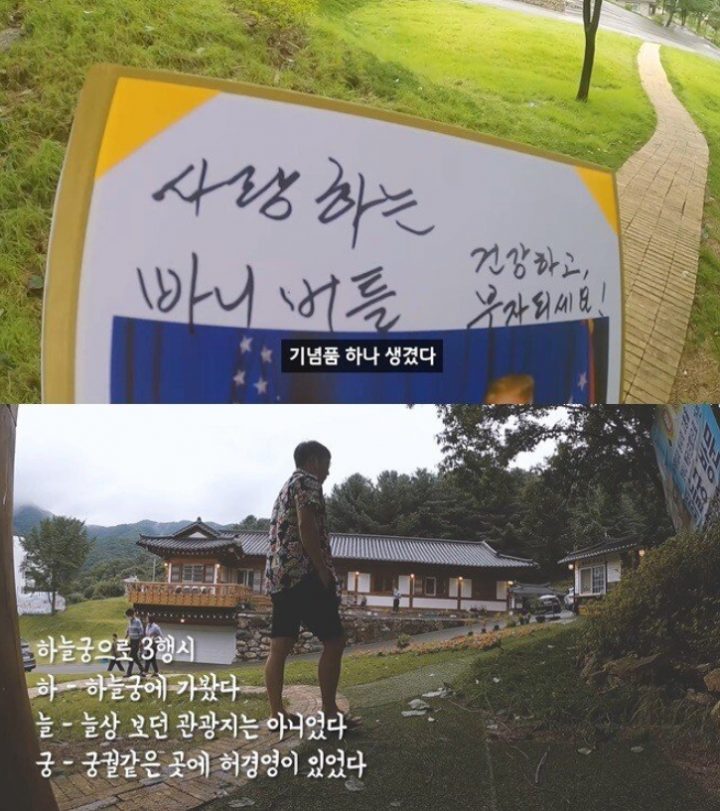 사랑하는
빠니 버틀
건강하고,
부자되세요!
기념품 하나 생겼다
하늘궁으로 3행시
하 - 하늘궁에 가봤다
늘 - 늘상 보던 관광지는 아니었다
궁 - 궁궐같은 곳에 허경영이 있었다